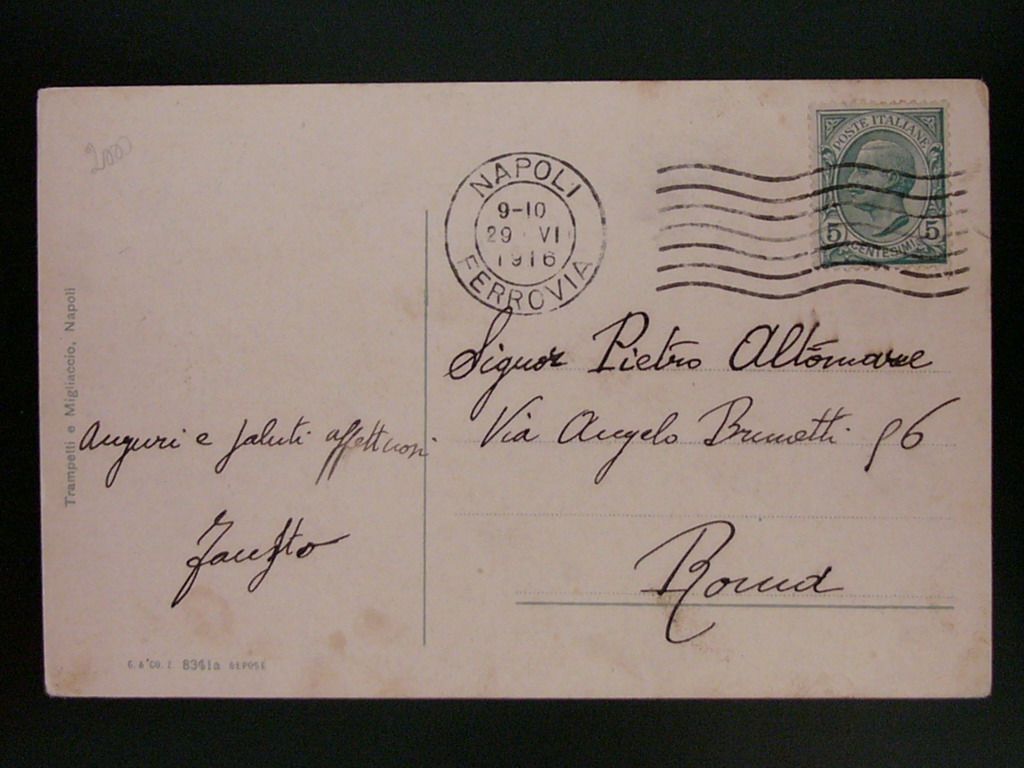 2000
NAPOLI
9-10
29 VI
1916
FERROVIA
POSTE ITALIANE
5 CENTESIMI 5
Trampetti e Migliaccio, Napoli
Auguri e saluti affettuosi
Fausto
Signor Pietro Altomare
Via Angelo Brunetti 96
Roma
8341a DEPOSE